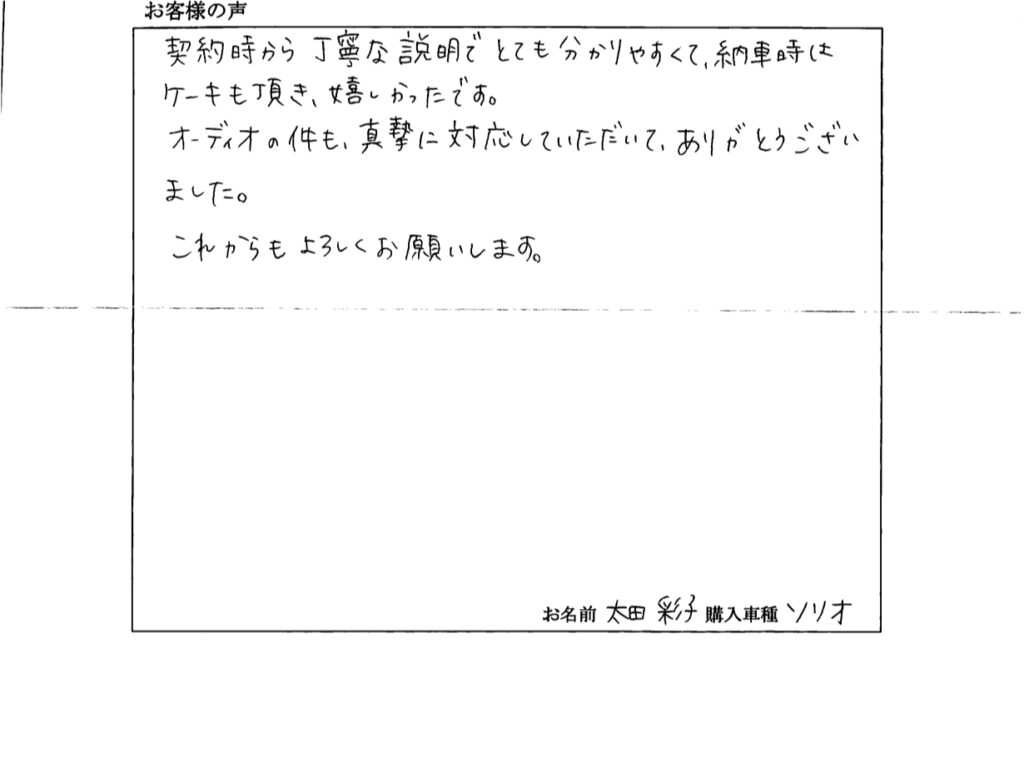 お客様の声
契約時から丁寧な説明でとても分かりやすくて、納車時は
ケーキも頂き、嬉しかったです。
オーディオの件も、真摯に対応していただいて、ありがとうござい
ました。
これからもよろしくお願いします。
お名前 太田 彩子 購入車種 ソリオ